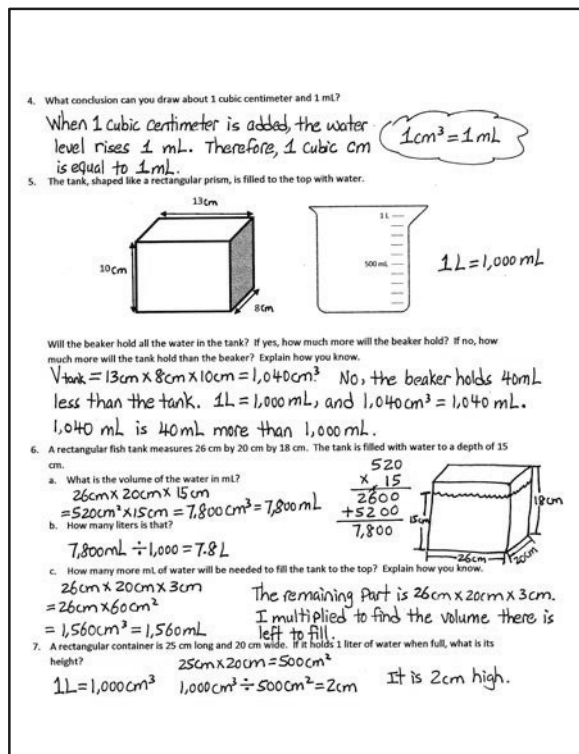 4. What conclusion can you draw about 1 cubic centimeter and 1 mL?
When 1 cubic centimeter is added, the water
level rises 1 mL. Therefore, 1 cubic cm
is equal to 1 mL.
1cm³ = 1 mL
5. The tank, shaped like a rectangular prism, is filled to the top with water.
13cm
10cm
8cm
1 L
500 mL
1L = 1,000 mL
Will the beaker hold all the water in the tank? If yes, how much more will the beaker hold? If no, how
much more will the tank hold than the beaker? Explain how you know.
Vtank = 13cm x 8cm x 10cm = 1,040cm³ No, the beaker holds 40mL
less than the tank. 1L = 1,000 mL, and 1,040cm³ = 1,040 mL.
1,040 mL is 40mL more than 1,000 mL.
6. A rectangular fish tank measures 26 cm by 20 cm by 18 cm. The tank is filled with water to a depth of 15
cm.
a. What is the volume of the water in mL?
26cm x 20cm x 15cm
= 520cm² x 15cm = 7,800cm³ = 7,800mL
520
x 15
2600
+5200
7,800
15cm
18cm
26cm
20cm
b. How many liters is that?
7,800mL ÷ 1,000 = 7.8L
c. How many more mL of water will be needed to fill the tank to the top? Explain how you know.
26cm x 20cm x 3cm
= 26cm x 60cm²
= 1,560cm³ = 1,560mL
The remaining part is 26cm x 20cm x 3cm.
I multiplied to find the volume there is
left to fill.
7. A rectangular container is 25 cm long and 20 cm wide. If it holds 1 liter of water when full, what is its
height?
25cm x 20cm = 500cm²
1L = 1,000cm³ 1,000cm³ ÷ 500cm² = 2cm It is 2cm high.